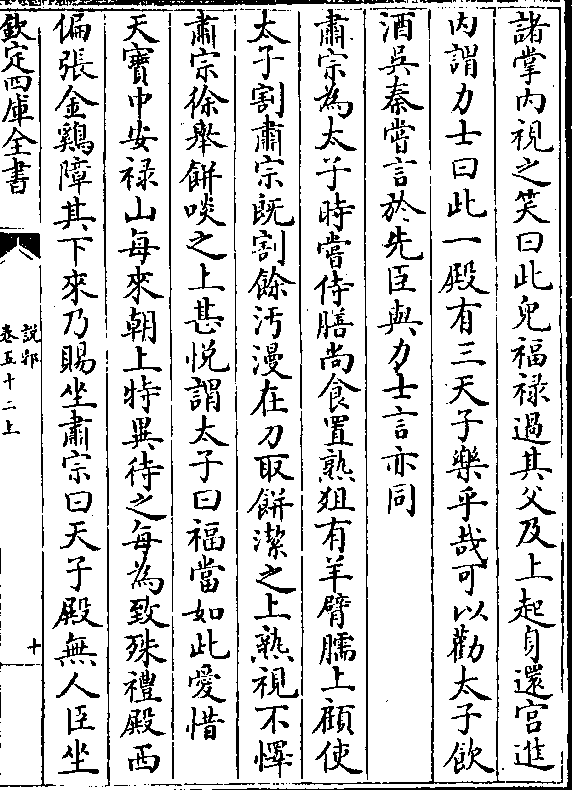 諸掌内視之笑曰此兒福禄過其父及上起身還宫進
内謂力士曰此一殿有三天子樂乎哉可以勸太子飲
酒吳秦嘗言於先臣與力士言亦同
肅宗為太子時嘗侍膳尚食置熟俎有羊臂臑上顧使
太子割肅宗既割餘汚漫在刀取餅潔之上熟視不懌
肅宗徐舉餅啖之上甚悦謂太子曰福當如此愛惜
天寶中安禄山每來朝上特異待之每為致殊禮殿西
偏張金鷄障其下來乃賜坐肅宗曰天子殿無人臣坐
欽定四庫全書
說郛
卷五十二上
十